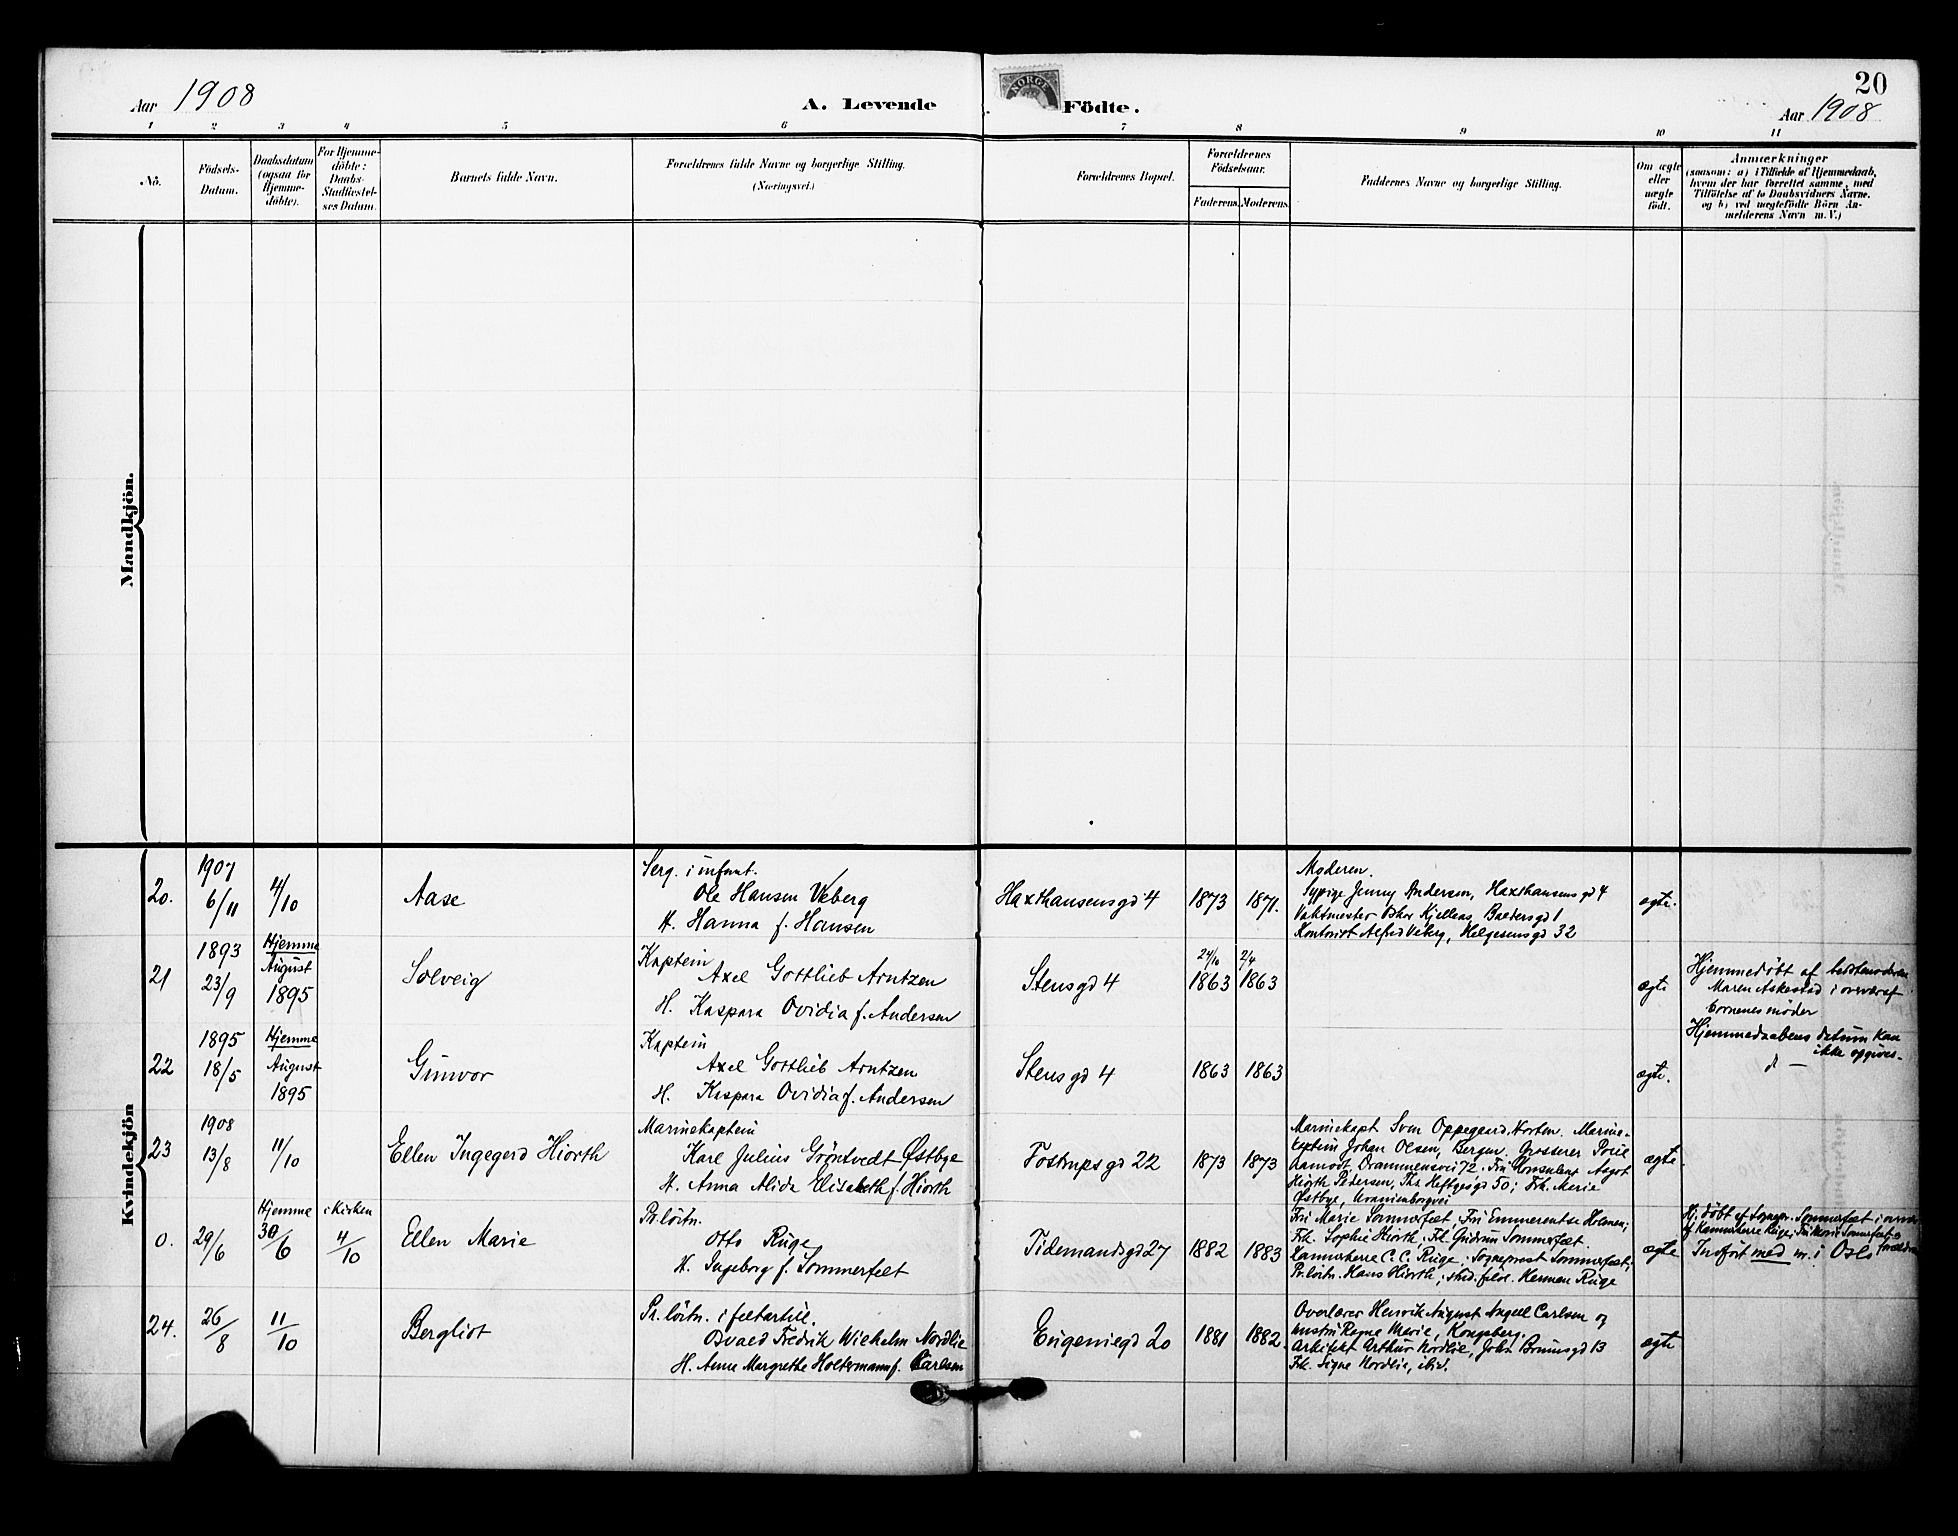 Aar 1908
A. Levende
NORGE
Födte.
20
Aar 1908
1 2 3 4 5 6 7 8 9 10 11
No.
Födsels-
Datum.
Daabsdatum
(ogsaa for
Hjemme-
döbte).
For Hjemme-
döbte:
Daabs-
Stadfæstel-
ses Datum.
Barnets fulde Navn.
Forældrenes fulde Navne og borgerlige Stilling.
(Næringsvei.)
Forældrenes Bopæl.
Forældrenes
Födselsaar.
Faderens. Moderens.
Faddernes Navne og borgerlige Stilling.
Om ægte
eller
uægte
födt.
Anmærkninger
(saasom: a) i Tilfælde af Hjemmedaab,
hvem der har forrettet samme, med
Tilföielse af to Daabsvidners Navne.
og b) ved uægtefödte Börn An-
melderens Navn m. V.)
Mandkjön.
Kvindekjön
20.
1907
6/11
4/10
Aase
Serg. i infant.
Ole Hansen Veberg
H. Hanna f. Hansen
Haxthausensgd 4
1873
1871.
Moderen.
Sypige Jenny Andersen, Haxthausensgd 4
Vaktmester Oskar Kjellens, Baldersgd 1
Kontorist Alfred Veberg, Helgesensgd 32
ægte.
21
1893
23/9
Hjemme
August
1895
Solveig
Kaptein
Axel Gottlieb Arntzen
H. Kaspara Ovidia f. Andersen
Stensgd 4
24/10
1863
2/4
1863
ægte
Hjemmedøbt af bedstemoderen
Maren Askestad i overvær af
børnenes moder
Hjemmedaabens datum kan
ikke opgives.
22
1895
18/5
Hjemme
August
1895
Gunvor
Kaptein
Axel Gottlieb Arntzen
H. Kaspara Ovidia f. Andersen
Stensgd 4
1863
1863
ægte.
d —
23
1908
13/8
11/10
Ellen Ingegerd Hiorth
Marinekaptein
Karl Julius Gröntvedt Østbye
H. Anna Alida Elisabeth f. Hiorth
Fostrupsgd 22
1873
1873
Marinekapt Sven Oppegard, Horten. Marine-
kaptein Johan Olsen, Bergen. Grosserer
Aamodt, Drammensvei 72. Fru Konsulent Aagot
Hiorth Pedersen, Ths Heftyesgd 50; Frk. Marie
Østbye, Uranienborgvei
ægte
0.
29/6
Hjemme
30/6
i Kirken
4/10
Ellen Marie
Pr.löitn.
Otto Ruge
H. Ingeborg f. Sommerfelt
Tidemandsgd 27
1882
1883
Fru Marie Sommerfelt, Fru Emmerentse Holmen;
Frk. Sophie Hiorth, Frk Gudrun Sommerfelt
Kammerherre C. C. Ruge. Sogneprest Sommerfelt;
Pr.löitn. Hans Hiorth, stud. filol. Herman Ruge
ægte
H. døbt af Sognepr. Sommerfelt i overvær
af Kammerherre Ruge, Fru Marie Sommerfelt o
forældre
Indført med nr. i Oslo
24.
26/8
11/10
Bergliot
Pr. löitn. i feltartill.
Osvald Fredrik Wilhelm Nordlie
H. Anne Margrethe Holtermann f. Carlsen
Eugeniegd 20
1881
1882.
Overlærer Henrik August Angell Carlsen og
hustru Ragna Marie, Kongsberg.
Arkitekt Arthur Nordlie, John Brunsgd 13
Frk. Signe Nordlie, ibid.
ægte